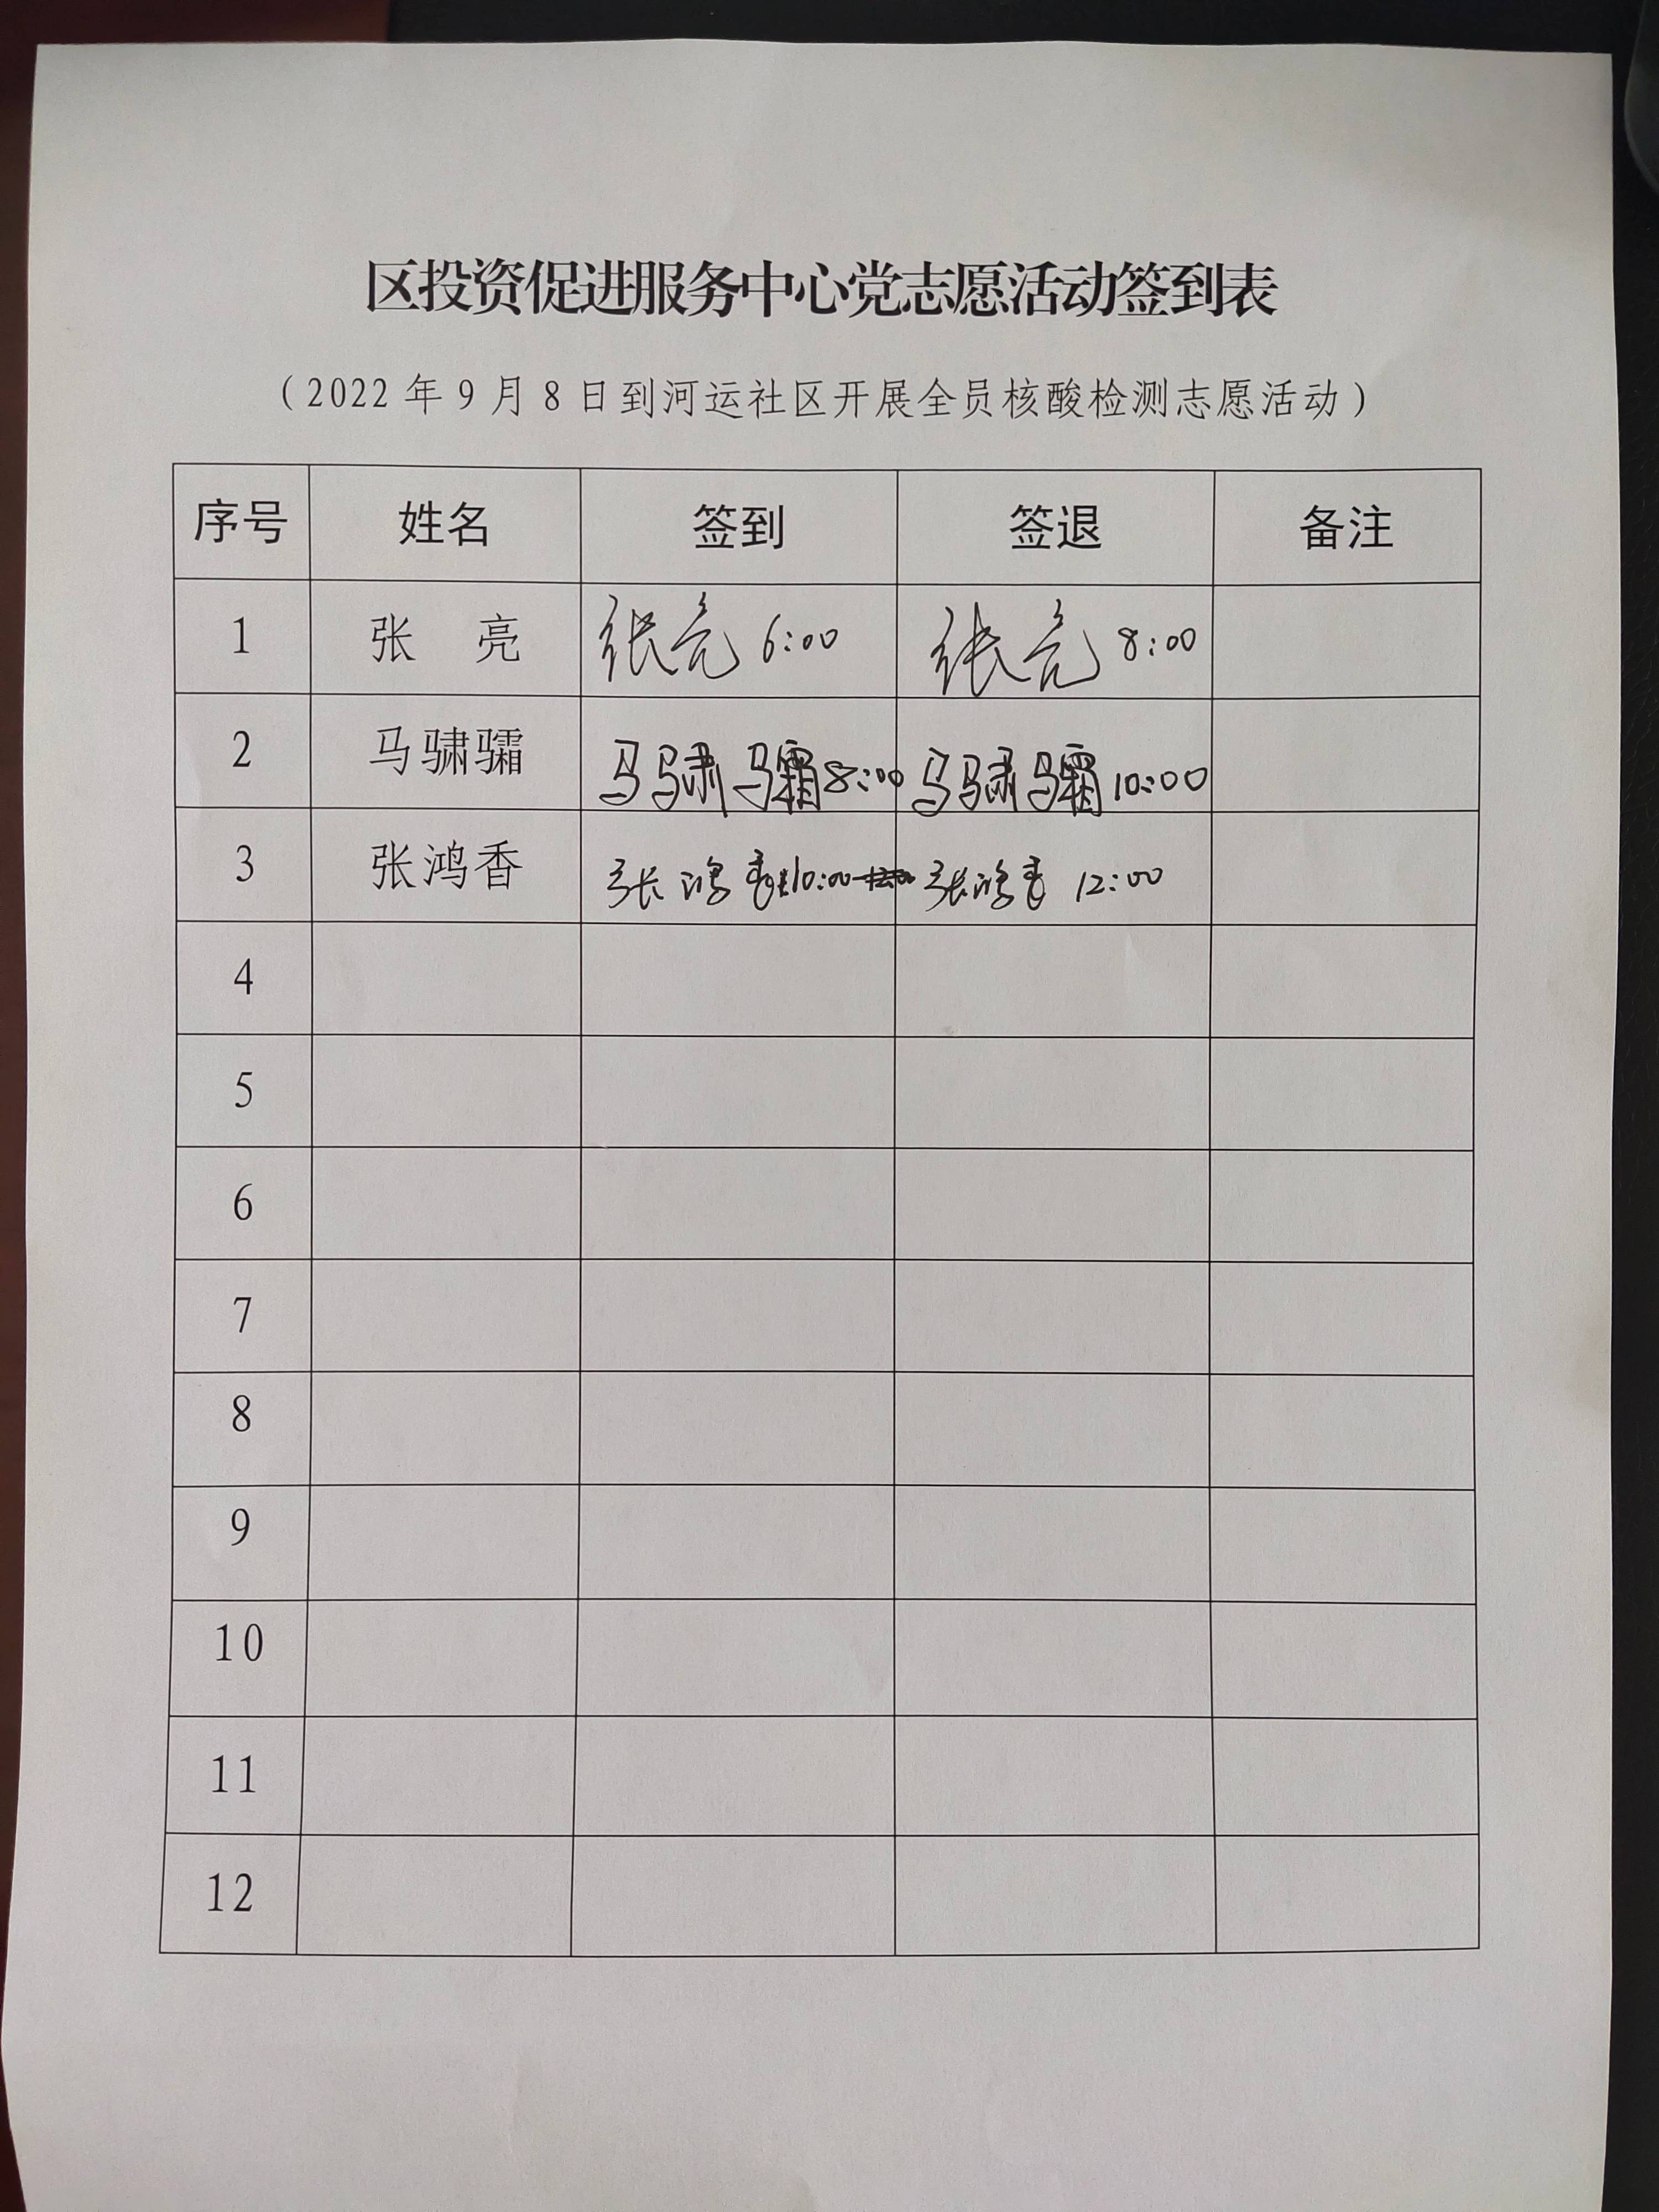 区投资促进服务中心党志愿活动签到表
（2022年9月8日到河运社区开展全员核酸检测志愿活动）
序号 姓名 签到 签退 备注
1 张 亮 张亮 6:00 张亮 8:00
2 马骕骦 马骕骦 8:00 马骕骦 10:00
3 张鸿香 张鸿香 10:00 张鸿香 12:00
4
5
6
7
8
9
10
11
12